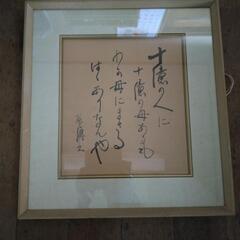 十億の人に
十億の母あらむも
わが母にまさる
母ありなんや